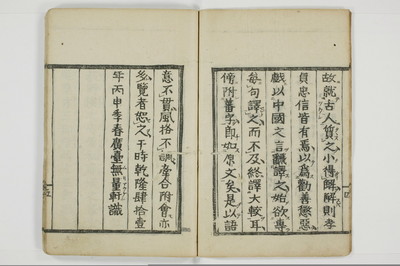 故就古人質之小得解解則孝
貞忠信皆有焉以爲勸善懲惡
戲以中國之言飜譯之始欲專
每句譯之而不及終譯大較耳
傍附蕃字即如原文矣是以語
意不貫風格不調牽合附會亦
多覽者恕之于時乾隆肆拾壹
年丙申季春廣臺無量軒識